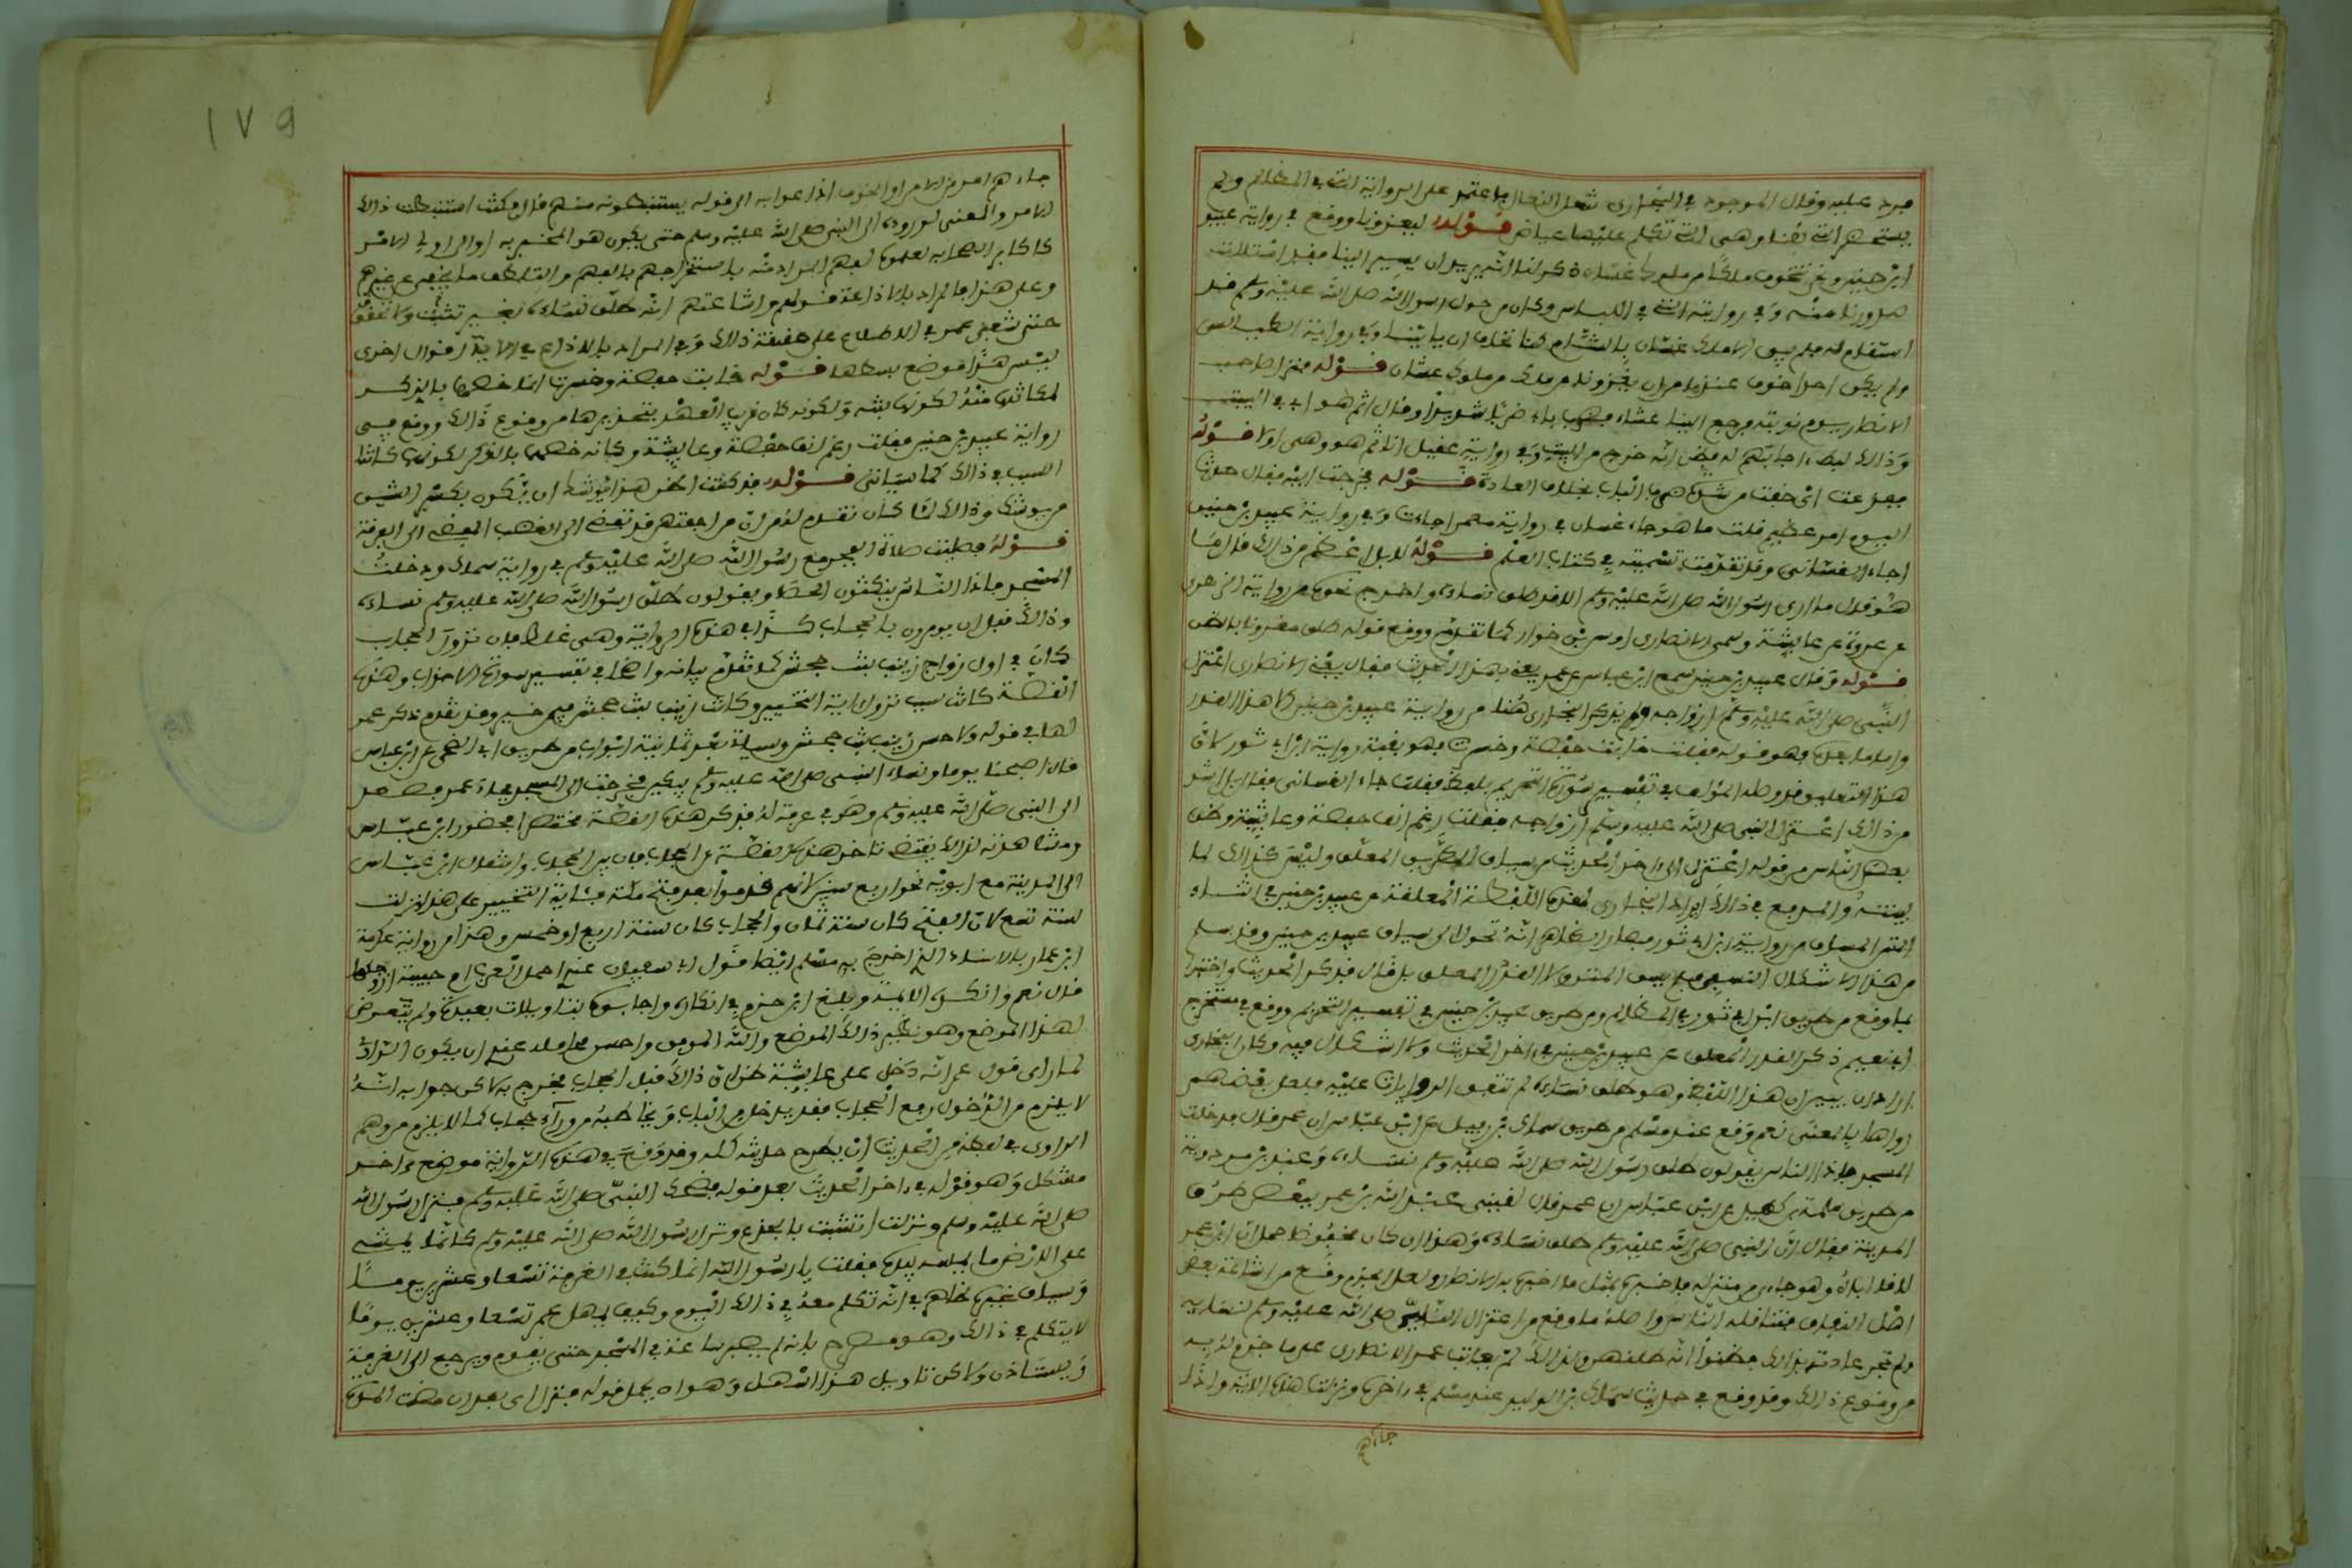 فرد عليه وقال الموجود في البخاري تنعل النعال فاعتمد على الرواية التي في المظالم ولم
يستحضر التي هنا وهي التي تكلم عليها عياض قوله لتغزونا ووقع في رواية عبيد
ابن حنين ونحن نتخوف ملكا من ملوك غسان ذكر لنا انه يريد ان يسير الينا فقد امتلات
صدورنا منه وفي روايته التي في اللباس وكان من حول رسول الله صلى الله عليه وسلم قد
استقام له فلم يبق الا ملك غسان بالشام كنا نخاف ان ياتينا وفي رواية الطيالسي
ولم يكن احدا خوف عندنا من ان يغزونا من ملك من ملوك غسان قوله فنزل صاحب
الانصار يوم نوبته فرجع الينا عشاء فضرب باب ضربا شديدا وقال اثم هو اي في البيت
وذالك لبطء اجابتهم له فظن انه خرج من البيت وفي رواية عقيل انايم هو وهي اولا قوله
ففزعت اي خفت من شدة ضرب الباب بخلاف العادة قوله فخرجت اليه فقال حدث
اليوم امر عظيم قلت ما هو جاء غسان في رواية معمر اجاءت وفي رواية عبيد بن حنين
اجاء الغساني وقد تقدمت تسميته في كتاب العلم قوله لا بل اعظم من ذالك قال ما
هو قال ما ارى رسول الله صلى الله عليه وسلم الا قد طلق نساءه واخرج نحوه من رواية الزهري
عن عروة عن عايشة وسمى الانصاري اوس بن خولي كما تقدم ووقع قوله طلق مقرونا بالظن
قوله وقال عبيد بن حنين سمع ابن عباس عن عمر يعني بهذا الحديث فقال يعني الانصاري اعتزل
النبي صلى الله عليه وسلم ازواجه ولم يذكر البخاري هنا من رواية عبيد بن حنين الا هذا القدر
واما ما بعده وهو قوله فقلت خابت حفصة وخسرت فهو بقية رواية ابن ابي ثور لان
هذا التعليق قد وصله المؤلف في تفسير سورة التحريم بلفظ فقلت جاء الغساني فقال بل اشد
من ذالك اعتزل النبي صلى الله عليه وسلم ازواجه فقلت رغم انف حفصة وعايشة وظن
بعض الناس من قوله اعتزل الى اخر الحديث من سياق الطريق المعلق وليس كذالك لما
بينته والموقع في ذالك ايراد البخاري لهذه اللفظة المعلقة عن عبيد بن حنين في اثناء
المتن المساق من رواية ابن ابي ثور فصار الظاهر انه تحول الى سياق عبيد بن حنين وقد سلم
من هذا الاشكال النسفي فلم يسق المتن ولا القدر المعلق بل قال فذكر الحديث واجتزا
بما وقع من طريق ابن ابي ثور في المظالم ومن طريق عبيد بن حنين في تفسير التحريم ووقع في مستخرج
ابي نعيم ذكر القدر المعلق عن عبيد بن حنين في اخر الحديث ولا اشكال فيه وكان البخاري
اراد ان يبين ان هذا اللفظ وهو طلق نساءه لم تتفق الروايات عليه فلعل بعضهم
رواها بالمعنى نعم وقع عند مسلم من طريق سماك بن زميل عن ابن عباس ان عمر قال فدخلت
المسجد فاذا الناس يقولون طلق رسول الله صلى الله عليه وسلم نساءه وعند بن مردويه
من طريق سلمة بن كهيل عن ابن عباس ان عمر قال لقيني عبد الله بن عمر ببعض طرق
المدينة فقال ان النبي صلى الله عليه وسلم طلق نساءه وهذا ان كان محفوظا حمل ان ابن عمر
لاقا اباه وهو جاء من منزله فاخبره بمثل ما اخبره به الانصار ولعل الجزم وقع من اشاعة بعض
اهل النفاق فتناقله الناس واصله ما وقع من اعتزال النبي صلى الله عليه وسلم لنسايه
ولم تجر عادته بذالك فظنوا انه طلقهن ولذالك لم يعاتب عمر الانصاري على ما جزم له به
من وقوع ذالك وقد وقع في حديث سماك بن الوليد عند مسلم في اخره ونزلت هذه الاية واذا
جاءهم
١٧٩
جاءهم امر من الامن او الخوف اذاعوا به الى قوله يستنبطونه منهم قال فكنت استنبطت ذالك
الامر والمعنى لو ردوه الى النبي صلى الله عليه وسلم حتى يكون هو المخبر به او الى اولي الامر
كاكابر الصحابة لعلموه لفهم المراد منه باستخراجهم بالفهم والتلطف ما يخفى عن غيرهم
وعلى هذا فالمراد بالاذاعة قولهم واشاعتهم انه طلق نساءه بغير تثبت ولا تحقق
حتى شفى عمر في الاطلاع على حقيقة ذالك وفي المراد بالاذاعة في الاية اقوال اخرى
ليس هذا موضع بسطها قوله خابت حفصة وخسرت انما خصها بالذكر
لمكانتها منه لكونها بنته ولكونه كان قرب العهد بتحذيرها من وقوع ذالك ووقع في
رواية عبيد بن حنين فقلت رغم انف حفصة وعايشة وكانه خصهما بالذكر لكونهما كانتا
السبب في ذالك كما سياتي قوله قد كنت اظن هذا يوشك ان يكون بكسر الشين
من يوشك وذالك لما كان تقدم له من ان مراجعتهن قد تفضي الى الغضب المفضي الى الفرقة
قوله فصليت صلاة الفجر مع رسول الله صلى الله عليه وسلم في رواية سماك ودخلت
المسجد فاذا الناس ينكتون الحصا ويقولون طلق رسول الله صلى الله عليه وسلم نساءه
وذالك قبل ان يومرن بالحجاب كذا في هذه الرواية وهي غلط فان نزول الحجاب
كان في اول زواج زينب بنت جحش كما تقدم بيانه واضحا في تفسير سورة الاحزاب وهذه
القصة كانت سبب نزول اية التخيير وكانت زينب بنت جحش فيمن خير وقد تقدم ذكر عمر
لها في قوله ولا حسن زينب بنت جحش وسياتي بعد ثمانية ابواب من طريق ابي الضحى عن ابن عباس
قال اصبحنا يوما ونساء النبي صلى الله عليه وسلم يبكين فخرجت الى المسجد فجاء عمر فصعد
الى النبي صلى الله عليه وسلم وهو في غرفة له فذكر هذه القصة مختصرا فحضور ابن عباس
ومشاهدته لذالك يقتضي تاخر هذه القصة عن الحجاب فان بين الحجاب وانتقال ابن عباس
الى المدينة مع ابويه نحو اربع سنين لانهم قدموا بعد فتح مكة فاية التخيير على هذا نزلت
سنة تسع لان الفتح كان سنة ثمان والحجاب كان سنة اربع او خمس وهذا من رواية عكرمة
ابن عمار بالاسناد الذي اخرج به مسلم ايضا قول ابي سفيان عندي اجمل العرب ام حبيبة ازوجكها
قال نعم وانكره الايمة وبلغ ابن حزم في انكاره واجابوه بتاويلات بعيدة ولم يتعرض
لهذا الموضع وهو نظير ذالك الموضع والله الموفق واحسن محامله عندي ان يكون الراوي
لما راى قول عمر انه دخل على عايشة ظن ان ذالك قبل الحجاب فجزم به لاكن جوابه انه
لا يلزم من الدخول رفع الحجاب فقد يدخل من الباب وتخاطبه من وراء حجاب كما لا يلزم من وهم
الراوي في لفظة من الحديث ان يطرح حديثه كله وقد وقع في هذه الرواية موضع اخر
مشكل وهو قوله في اخر الحديث بعد قوله فضحك النبي صلى الله عليه وسلم فنزل رسول الله
صلى الله عليه وسلم ونزلت اتشبت بالجذع ونزل رسول الله صلى الله عليه وسلم كانما يمشي
على الارض ما يمسه بيده فقلت يا رسول الله انما كنت في الغرفة تسعا وعشرين يوما
وسياق غيره ظاهر في انه تكلم معه في ذالك اليوم وكيف يمهل عمر تسعا وعشرين يوما
لا يتكلم في ذالك وهو مصرح بانه لم يصبر ساعة في المسجد حتى يقوم ويرجع الى الغرفة
ويستاذن ولاكن تاويل هذا سهل وهو ان يحمل قوله فنزل اي بعد ان مضت المدة